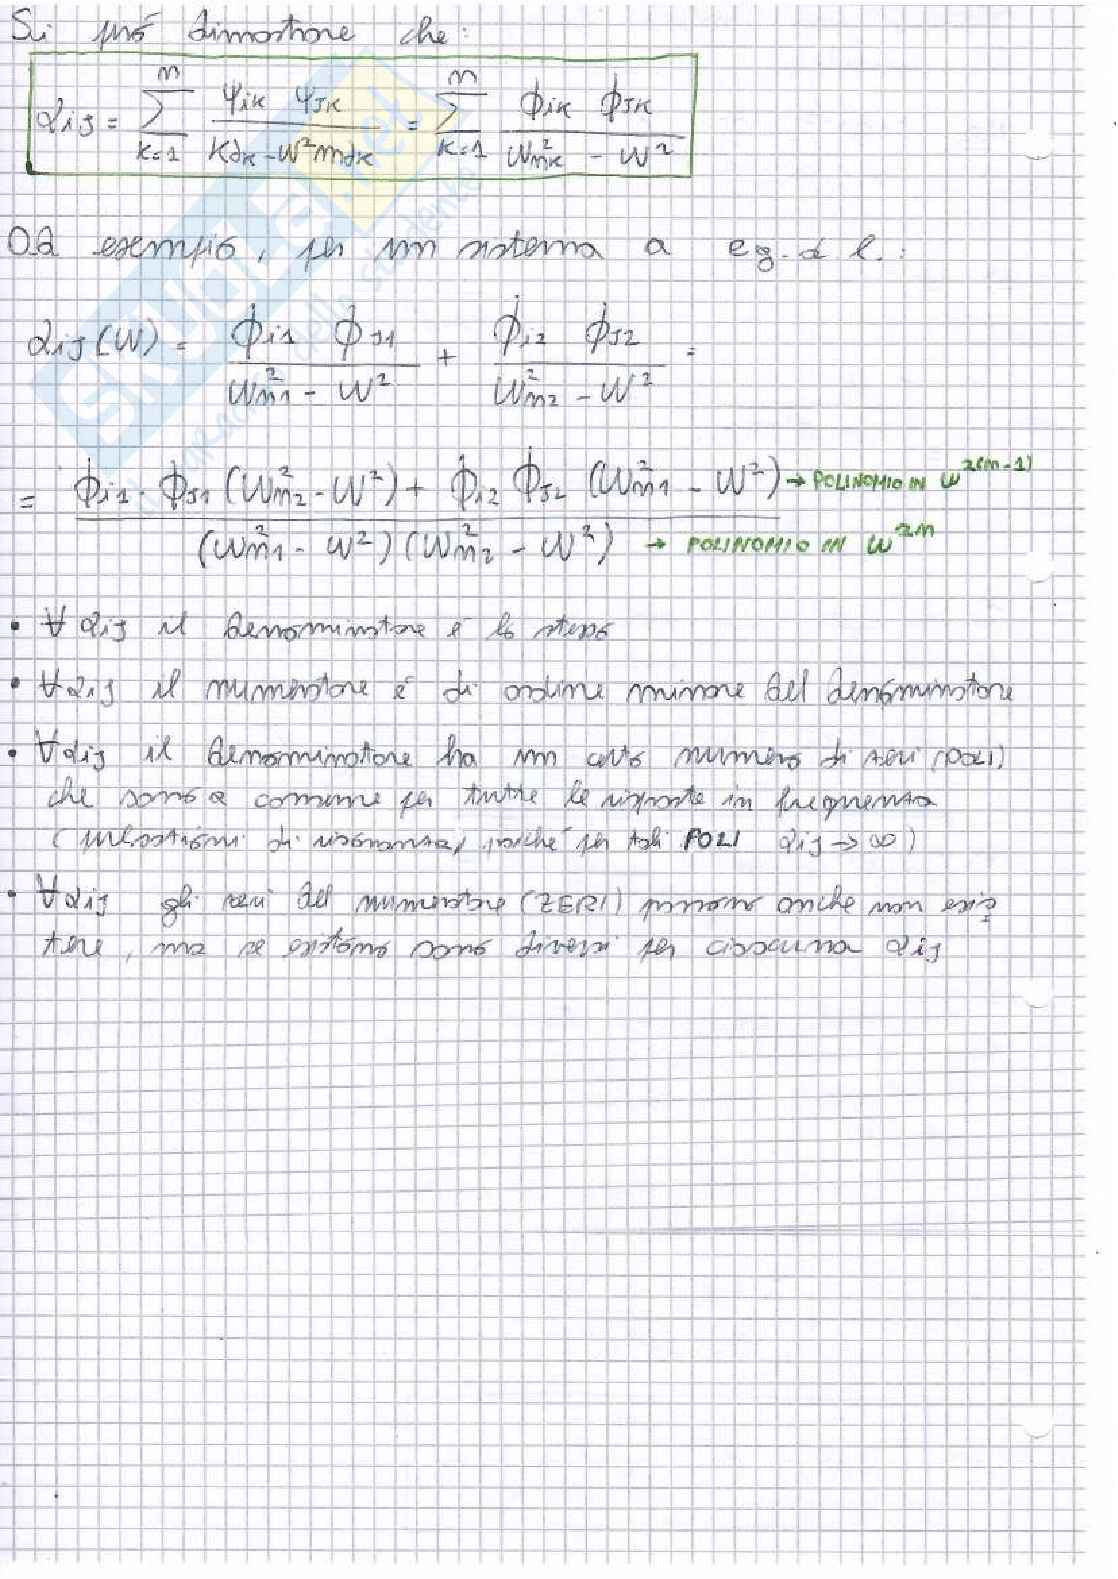 Si può dimostrare che:
αij = Σ_{k=1}^{n} ψik ψjk / (Kdk - ω²mdk) = Σ_{k=1}^{n} ϕik ϕjk / (ωnk² - ω²)
Ad esempio, per un sistema a 2 g.d.l.:
αij(ω) = ϕi1 ϕj1 / (ωn1² - ω²) + ϕi2 ϕj2 / (ωn2² - ω²) =
= ϕi1 · ϕj1 (ωn2² - ω²) + ϕi2 ϕj2 (ωn1² - ω²) → POLINOMIO IN ω^2(n-1)
(ωn1² - ω²) (ωn2² - ω²) → POLINOMIO IN ω^2n
• ∀ αij il denominatore è lo stesso
• ∀ αij il numeratore è di ordine minore del denominatore
• ∀ αij il denominatore ha un certo numero di zeri (POLI)
che sono a comune per tutte le risposte in frequenza
(pulsazioni di risonanza, poiché per tali POLI αij → ∞)
• ∀ αij gli zeri del numeratore (ZERI) possono anche non esis
tere, ma se esistono sono diversi per ciascuna αij
SKUOLA.net